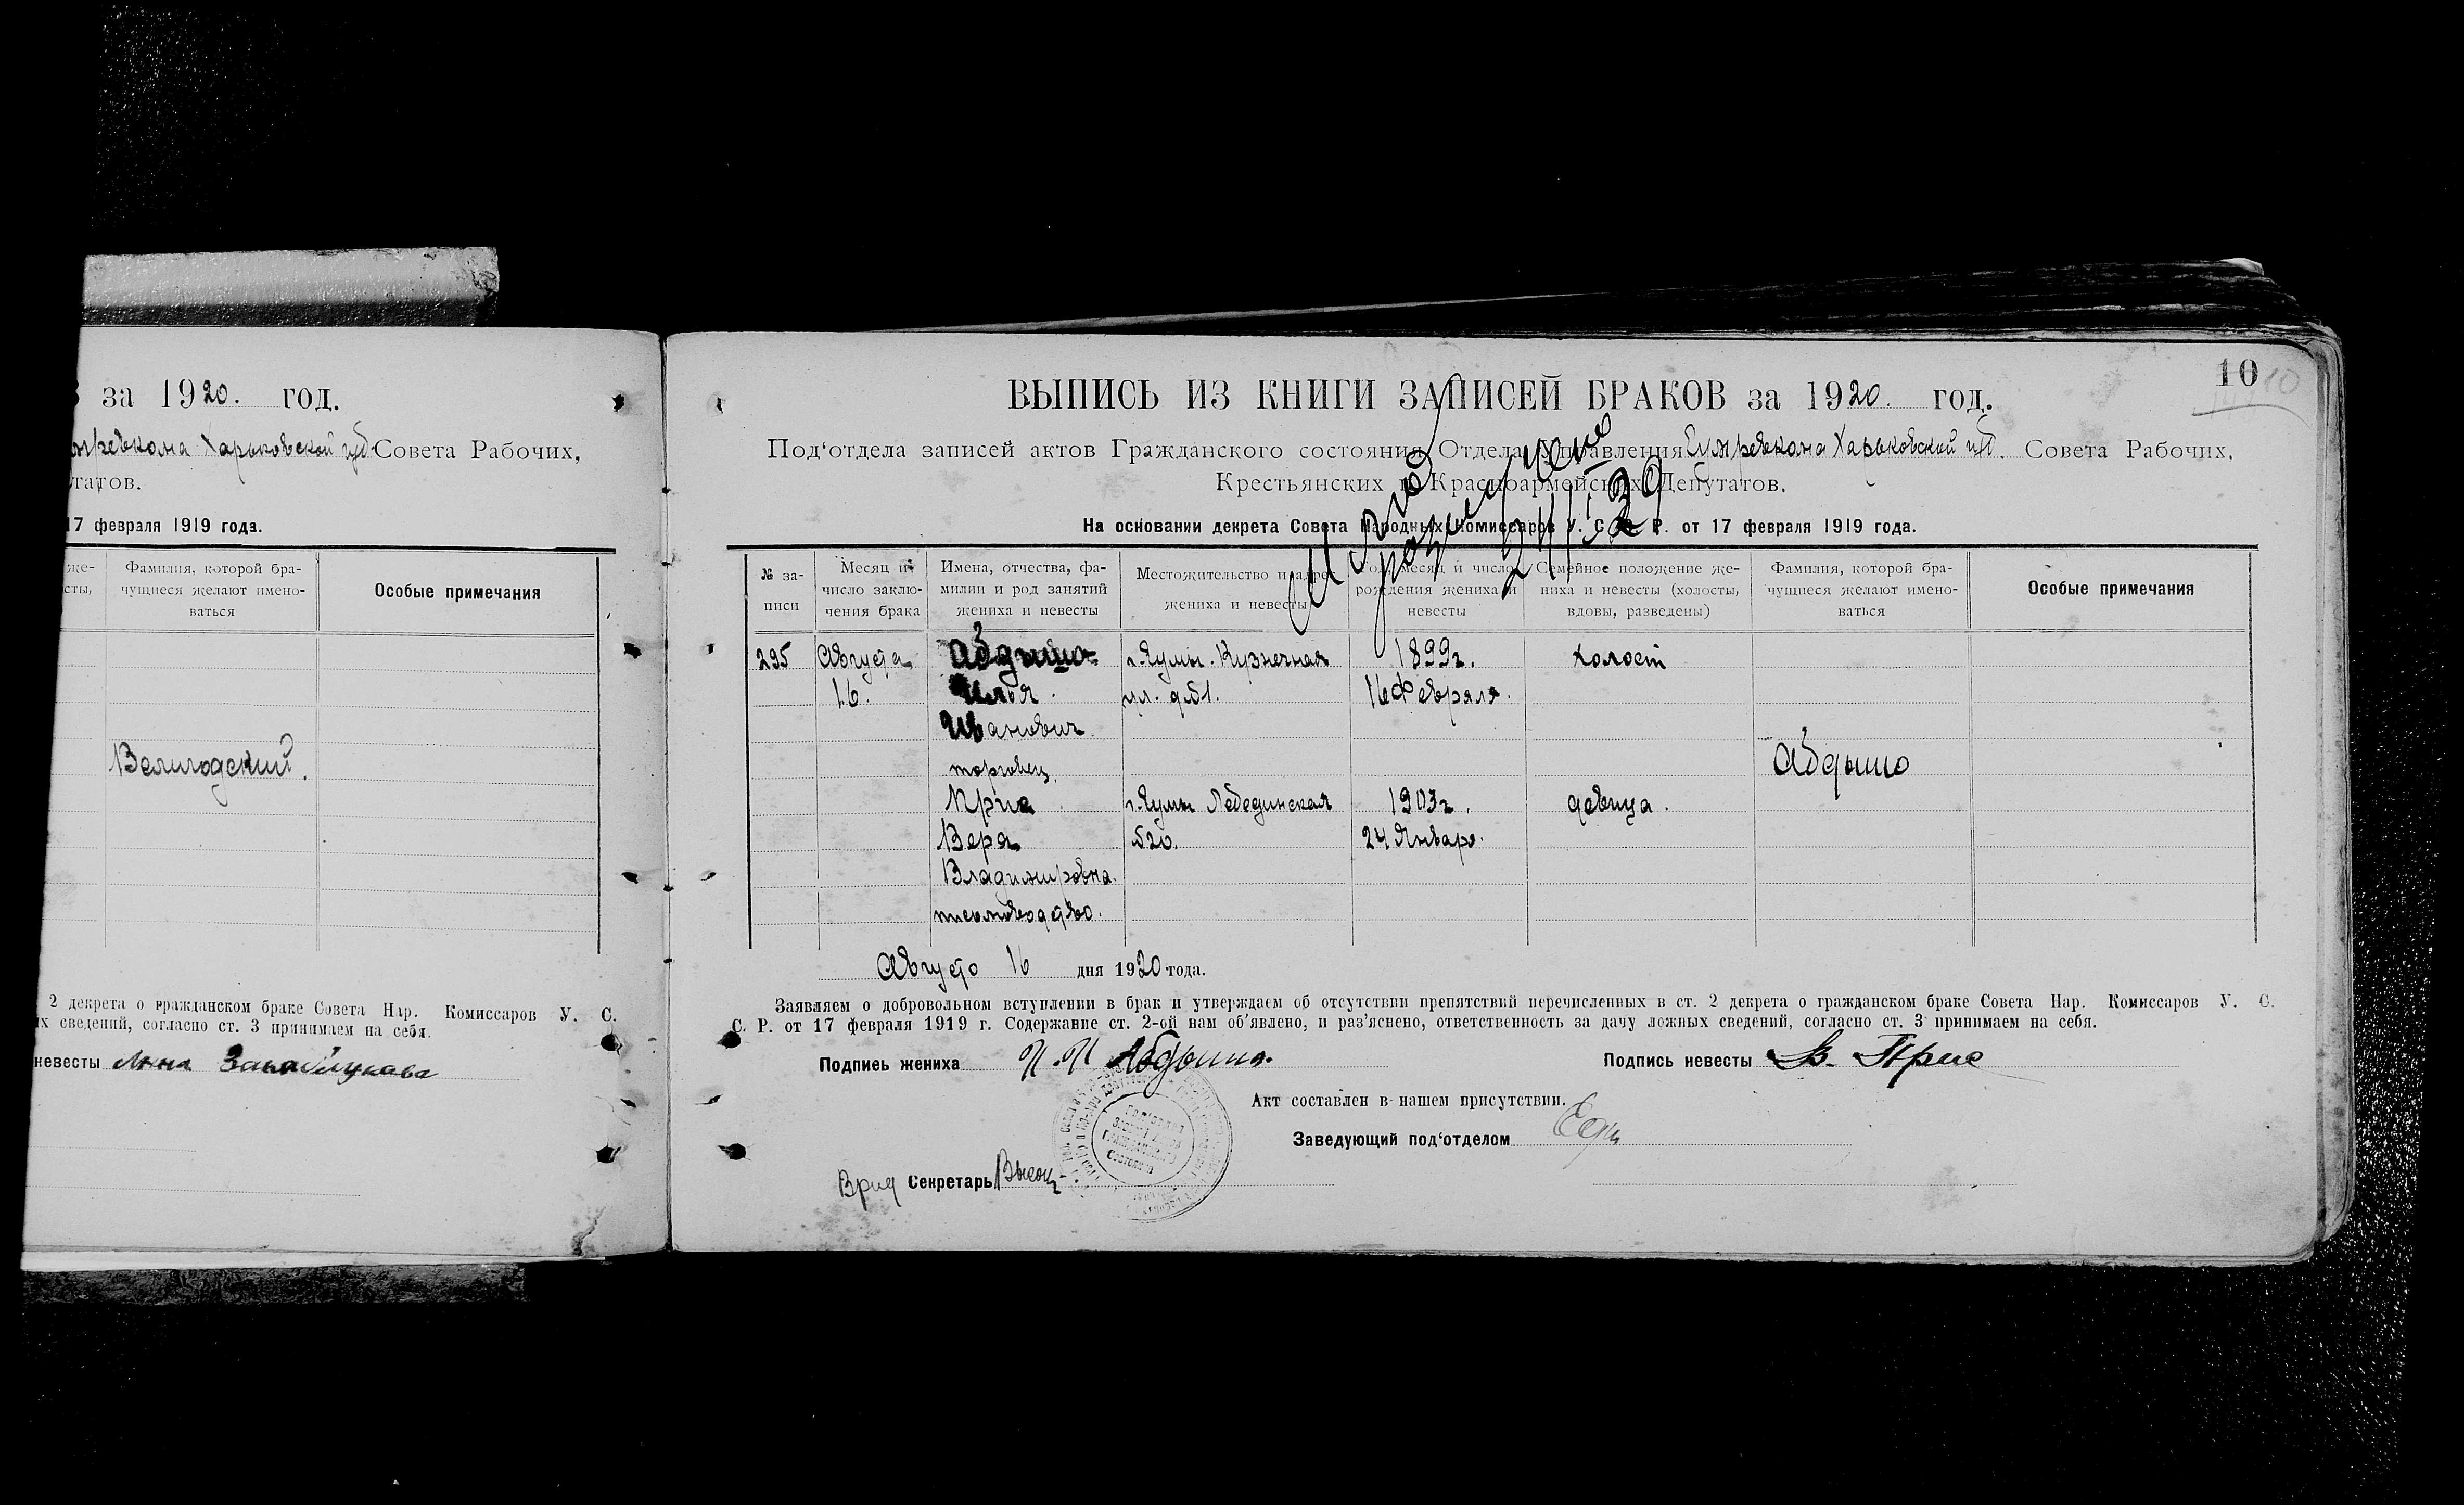 за 1920. год.
Харьковской губ Совета Рабочих,
татов.
17 февраля 1919 года.
же-
сты,
Фамилия, которой бра-
чущиеся желают имено-
ваться
Особые примечания
Велигодский.
2 декрета о гражданском браке Совета Нар. Комиссаров У. С.
их сведений, согласно ст. 3 принимаем на себя.
невесты Анна
10
10
ВЫПИСЬ ИЗ КНИГИ ЗАПИСЕЙ БРАКОВ за 1920. год.
Под‘отдела записей актов Гражданского состояния Отдела Управления Сумревкома Харьковской губ. Совета Рабочих,
Крестьянских и Красноармейских Депутатов.
На основании декрета Совета Народных Комиссаров У. С. С. Р. от 17 февраля 1919 года.
№ за-
писи
Месяц и
число заклю-
чения брака
Имена, отчества, фа-
милии и род занятий
жениха и невесты
Местожительство и адрес
жениха и невесты
Год, месяц и число
рождения жениха и
невесты
Семейное положение же-
ниха и невесты (холосты,
вдовы, разведены)
Фамилия, которой бра-
чущиеся желают имено-
ваться
Особые примечания
295 Августа Абдышо г. Сумы. Кузнечная 1899г. холост
16. Илья ул. д. №1. 16 Февраля.
Иванович
торговец. Абдышо
Прис г. Сумы Лебединская 1903г. девица.
Вера №20. 24 Января.
Владимировна.
письмоводство.
Августа 16 дня 1920 года.
Заявляем о добровольном вступлении в брак и утверждаем об отсутствии препятствий перечисленных в ст. 2 декрета о гражданском браке Совета Нар. Комиссаров У. С.
С. Р. от 17 февраля 1919 г. Содержание ст. 2-ой нам об‘явлено, и раз‘яснено, ответственность за дачу ложных сведений, согласно ст. 3 принимаем на себя.
Подпись жениха И. И Абдышо. Подпись невесты В. Прис
Акт составлен в нашем присутствии.
Заведующий под‘отделом
Врид Секретарь